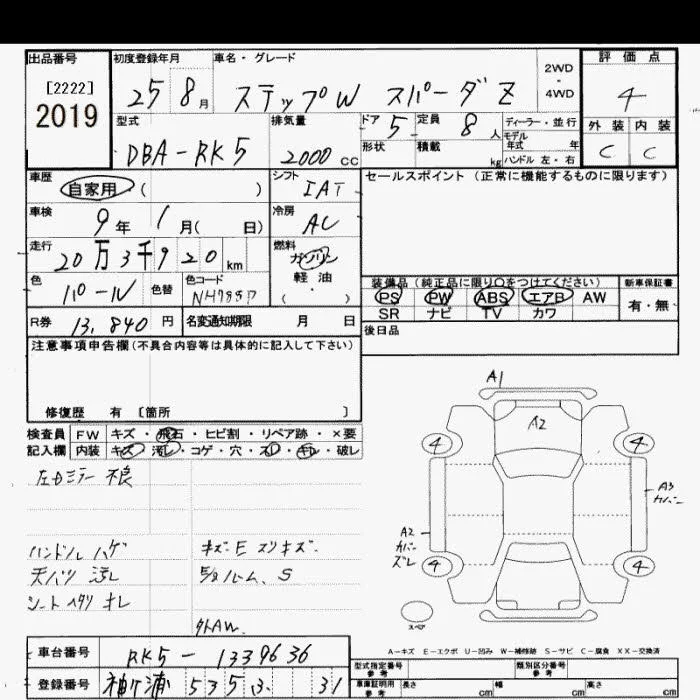 出品番号 [2222] 2019
初度登録年月 25 8月
車名・グレード ステップW スパーダZ
2WD・4WD
評価点 4
外装 内装
C C
型式 DBA-RK5
排気量 2000cc
ドア 5 定員 8人
ディーラー・並行
モデル年式 年
形状 積載 kg ハンドル 左・右
車歴 自家用 ( )
シフト IAT
セールスポイント(正常に機能するものに限ります)
車検 9年 1月( 日)
冷房 AC
走行 20万3千920km
燃料 ガソリン 軽油 ( )
色 パール 色替 色コード NH788P
装備品(純正品に限り○をつけてください) 新車保証書
PS PW ABS エアB AW 有・無
SR ナビ TV カワ
R券 13,840円 名変通知期限 月 日
後日品
注意事項申告欄(不具合内容等は具体的に記入して下さい)
修復歴 有 [箇所 ]
検査員 FW キズ・飛石・ヒビ割・リペア跡・×要
記入欄 内装 キズ・汚レ・コゲ・穴・スレ・キレ・破レ
左Dミラー 不良
ハンドル ハゲ
天バリ 汚レ
シート ヘタリ キレ
キズ・E スリキズ・
外AW
A1
A2
4 4
A3 カバー
A2 カバー ズレ
4 4
スペア
A-キズ E-エクボ U-凹み W-補修跡 S-サビ C-腐食 XX-交換済
車台番号 RK5-1339636
登録番号 袖ヶ浦 535 ひ 31
型式指定番号 参考
類別区分番号 参考
車庫証明用 参考 長さ cm 幅 cm 高さ cm